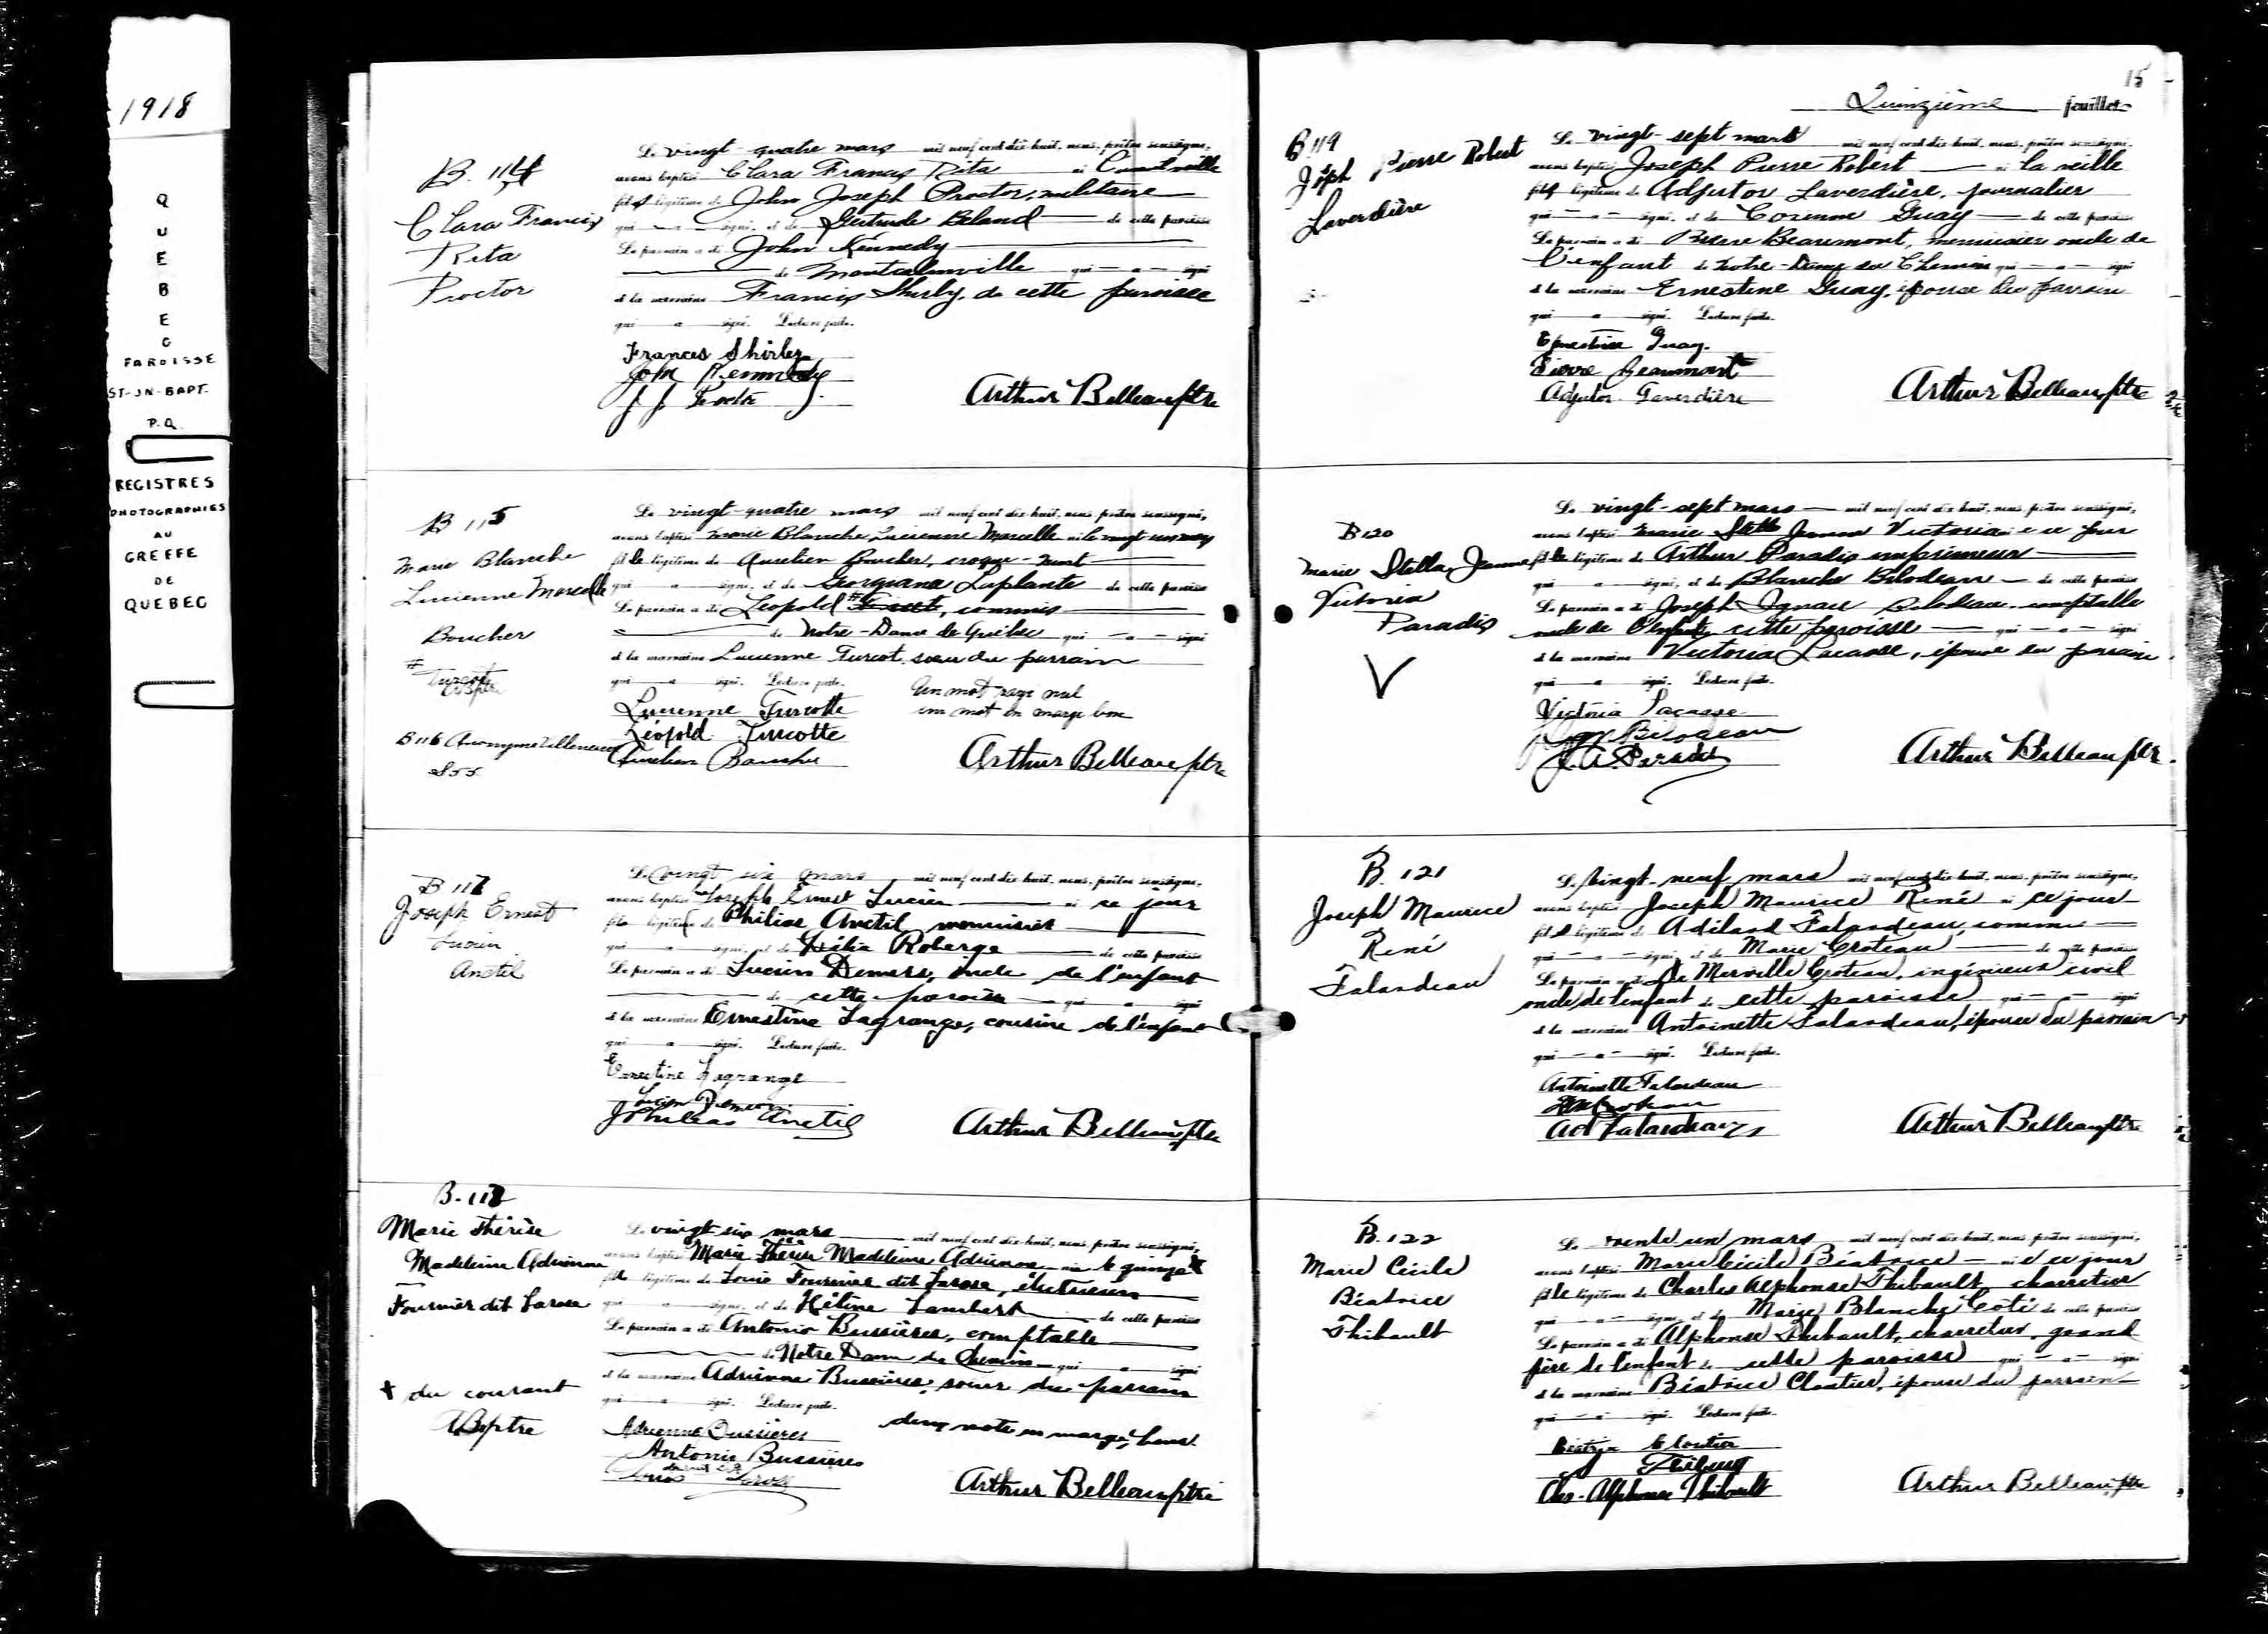 1918
QUEBEC
PAROISSE
ST-JN-BAPT.
P.Q.
REGISTRES
PHOTOGRAPHIES
AU
GREFFE
DE
QUEBEC
B. 114
Clara Francis
Rita
Proctor
Le vingt-quatre mars mil neuf cent dix-huit, nous, prêtre soussigné,
avons baptisé Clara Francis Rita née
fille légitime de John Joseph Proctor, militaire
qui a signé, et de Gertrude Beland de cette paroisse
Le parrain a été John Kennedy
de Montcalmville qui a signé
et la marraine Francis Shirly, de cette paroisse
qui a signé. Lecture faite.
Frances Shirley
John Kennedy
J. J. Proctor
Arthur Belleau ptre
B 115
Marie Blanche
Lucienne Marcelle
Boucher
# Turcot
ABptre
Le vingt-quatre mars mil neuf cent dix-huit, nous, prêtre soussigné,
avons baptisé Marie Blanche Lucienne Marcelle née le vingt un mars
fille légitime de Aurelien Boucher, croque-mort
qui a signé, et de Georgiana Laplante de cette paroisse
Le parrain a été Leopold # commis
de Notre-Dame de Québec qui a signé
et la marraine Lucienne Turcot, sœur du parrain
qui a signé. Lecture faite.
Un mot rayé nul
un mot en marge bon
Lucienne Turcotte
Léopold Turcotte
Aurelien Boucher
Arthur Belleau ptre
B 116 Anonyme Villeneuve
B 117
Joseph Ernest
Lucien
Anctil
Le vingt six mars mil neuf cent dix-huit, nous, prêtre soussigné,
avons baptisé Joseph Ernest Lucien né ce jour
fils légitime de Philias Anctil menuisier
qui a signé, et de Délia Roberge de cette paroisse
Le parrain a été Lucien Demers, oncle de l'enfant
de cette paroisse qui a signé
et la marraine Ernestine Lagrange, cousine de l'enfant
qui a signé. Lecture faite.
Ernestine Lagrange
Lucien Demers
J Phileas Anctil
Arthur Belleau ptre
B. 118
Marie Thérèse
Madeleine Adrienne
Fournier dit Larose
+ du courant
ABptre
Le vingt-six mars mil neuf cent dix-huit, nous, prêtre soussigné,
avons baptisé Marie Thérèse Madeleine Adrienne née le quinze +
fille légitime de Louis Fournier dit Larose, électricien
qui a signé, et de Hélène Lambert de cette paroisse
Le parrain a été Antonio Bussières, comptable
de Notre Dame du Chemin qui a signé
et la marraine Adrienne Bussières, sœur du parrain
qui a signé. Lecture faite.
deux mots en marge, bons
Adrienne Bussières
Antonio Bussières
Louis Larose
Arthur Belleau ptre
15
Quinzième feuillet
B. 119
Jsph Pierre Robert
Laverdière
Le vingt-sept mars mil neuf cent dix-huit, nous, prêtre soussigné,
avons baptisé Joseph Pierre Robert né la veille
fils légitime de Adjutor Laverdière, journalier
qui a signé, et de Corinne Guay de cette paroisse
Le parrain a été Pierre Beaumont, menuisier oncle de
l'enfant de Notre-Dame du Chemin qui a signé
et la marraine Ernestine Guay, épouse du parrain
qui a signé. Lecture faite.
Ernestine Guay
Pierre Beaumont
Adjutor Laverdière
Arthur Belleau ptre
B 120
Marie Stella Jeanne
Victoria
Paradis
V
Le vingt-sept mars mil neuf cent dix-huit, nous, prêtre soussigné,
avons baptisé Marie Stella Jeanne Victoria née ce jour
fille légitime de Arthur Paradis imprimeur
qui a signé, et de Blanche Bilodeau de cette paroisse
Le parrain a été Joseph Ignace Bilodeau comptable
oncle de l'enfant de cette paroisse qui a signé
et la marraine Victoria Lacasse, épouse du parrain
qui a signé. Lecture faite.
Victoria Lacasse
Bilodeau
J. A. Paradis
Arthur Belleau ptr.
B. 121
Joseph Maurice
René
Falardeau
Le vingt-neuf mars mil neuf cent dix-huit, nous, prêtre soussigné,
avons baptisé Joseph Maurice René né ce jour
fils légitime de Adélard Falardeau, commis
qui a signé, et de Marie Croteau de cette paroisse
Le parrain a été De Merville Croteau, ingénieur civil
oncle de l'enfant de cette paroisse qui a signé
et la marraine Antoinette Falardeau, épouse du parrain
qui a signé. Lecture faite.
Antoinette Falardeau
Croteau
Ad Falardeau
Arthur Belleau ptre
B. 122
Marie Cécile
Béatrice
Thibault
Le trente un mars mil neuf cent dix-huit, nous, prêtre soussigné,
avons baptisé Marie Cécile Béatrice née ce jour
fille légitime de Charles Alphonse Thibault, charretier
qui a signé, et de Marie Blanche Côté de cette paroisse
Le parrain a été Alphonse Thibault, charretier, grand
père de l'enfant de cette paroisse qui a signé
et la marraine Béatrice Cloutier, épouse du parrain
qui a signé. Lecture faite.
Béatrix Cloutier
A Thibault
Chs-Alphonse Thibault
Arthur Belleau, ptre